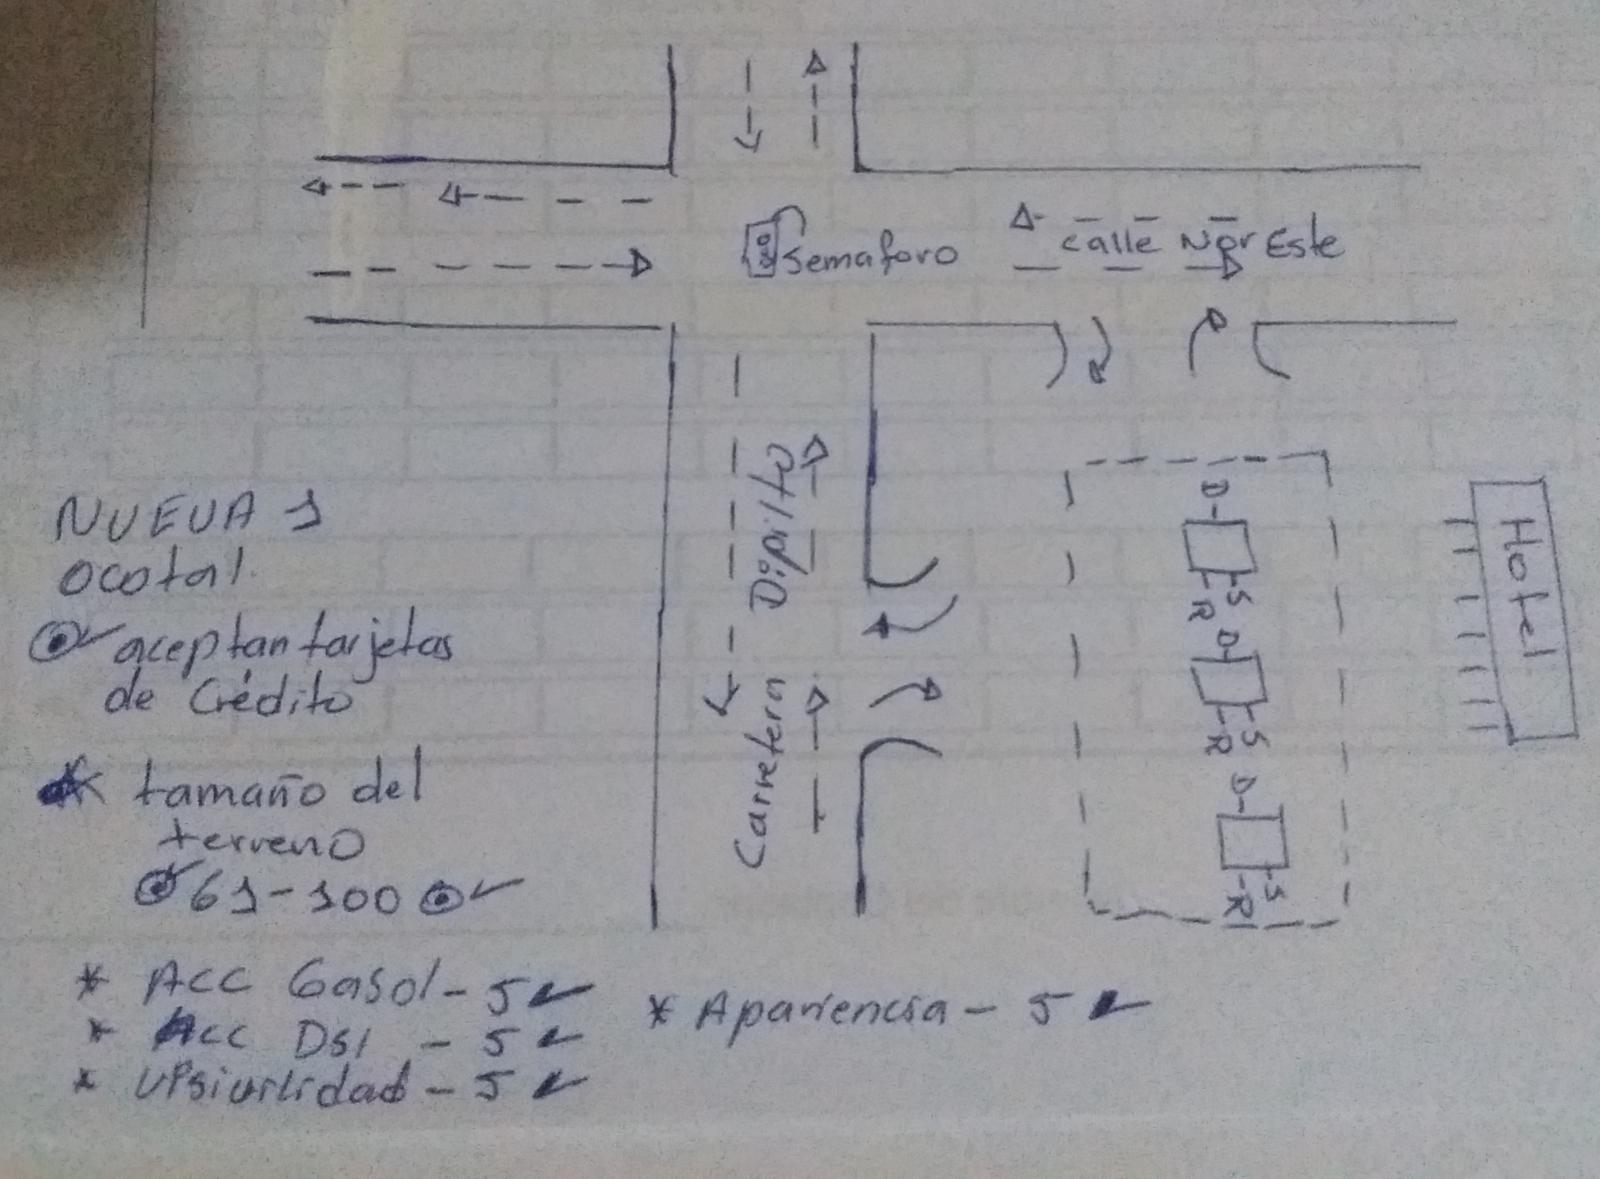 Semaforo
Calle NorEste
Carretera Dipilto
D
S
R
D
S
R
D
S
R
Hotel
NUEVA 1
Ocotal.
aceptan tarjetas
de Crédito
* tamaño del
terreno
61-100
* Acc Gasol - 5
* Acc Dsl - 5
* Visivilidad - 5
* Apariencia - 5